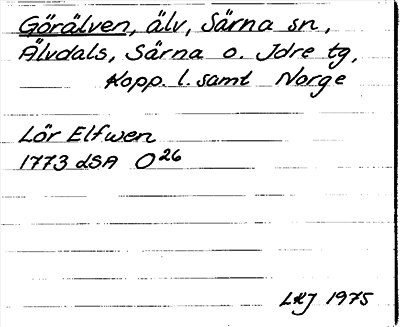 Görälven, älv, Särna sn,
Älvdals, Särna o. Idre tg,
Kopp. l. samt Norge
Lör Elfwen
1773 dSA O26
LHJ 1975